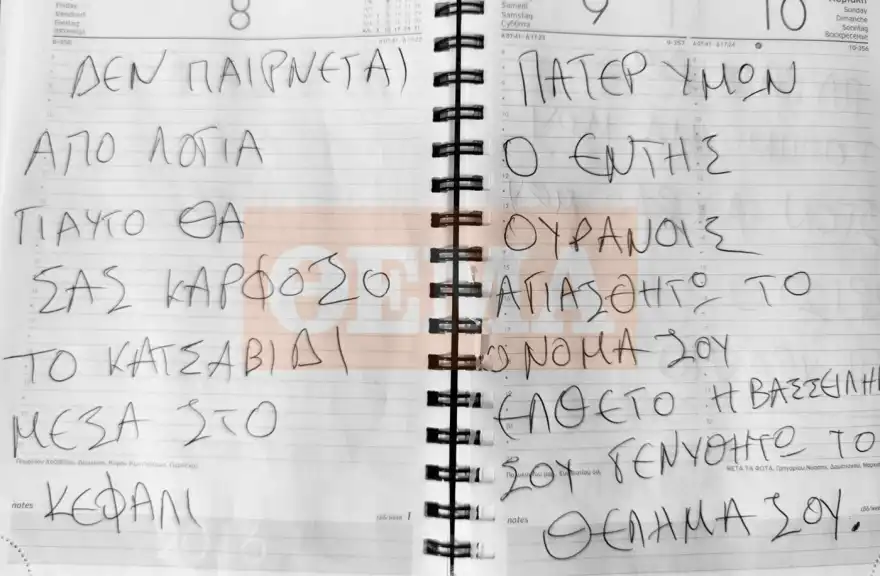 8
ΔΕΝ ΠΑΙΡΝΕΤΑΙ
ΑΠΟ ΛΟΓΙΑ
ΓΙΑΥΤΟ ΘΑ
ΣΑΣ ΚΑΡΦΟΣΟ
ΤΟ ΚΑΤΣΑΒΙΔΙ
ΜΕΣΑ ΣΤΟ
ΚΕΦΑΛΙ
notes
9
10
Samedi
Samstag
Σάββατο
Sunday
Dimanche
Sonntag
ΠΑΤΕΡ ΥΜΩΝ
Ο ΕΝΤΗΣ
ΟΥΡΑΝΟΙΣ
ΑΓΙΑΣΘΗΤΩ ΤΟ
ΟΝΟΜΑ ΣΟΥ
ΕΛΘΕΤΟ Η ΒΑΣΣΕΙΛΗ
ΣΟΥ ΓΕΝΥΘΗΤΩ ΤΟ
ΘΕΛΗΜΑ ΣΟΥ.
notes
ΘΕΜΑ